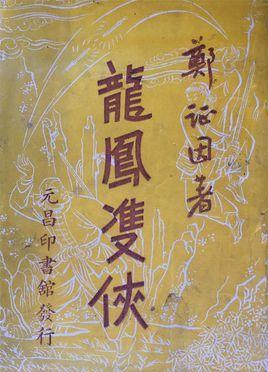 鄭証因著
龍鳳雙俠
元昌印書館發行